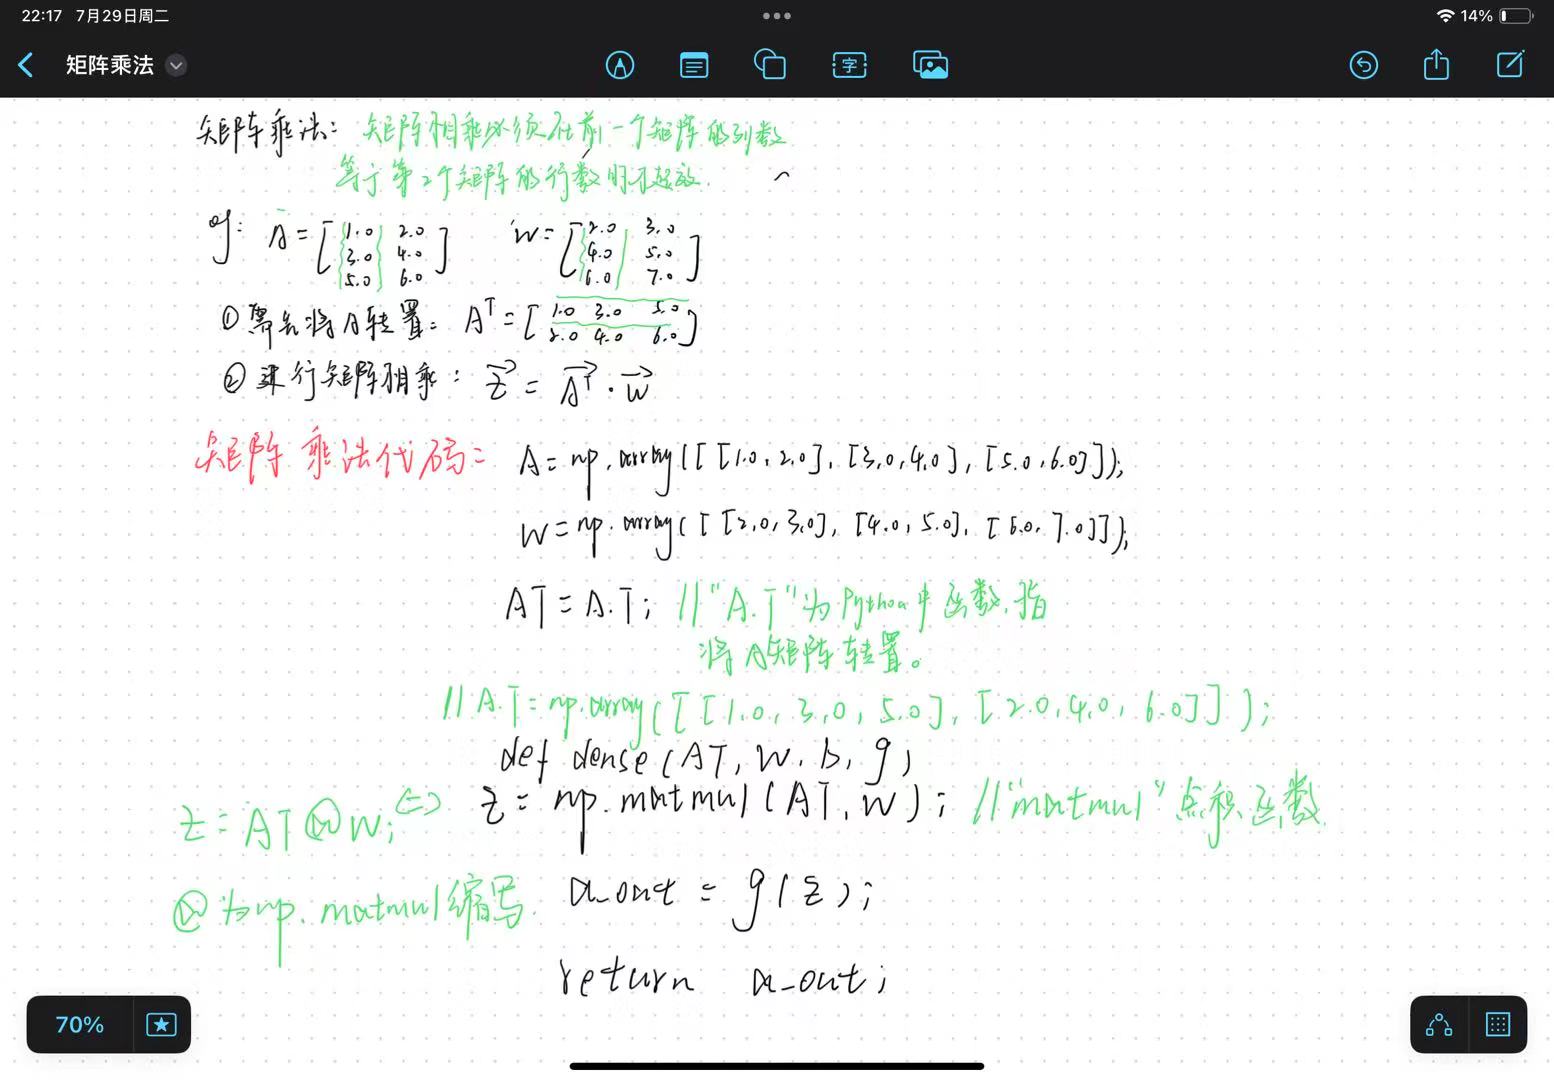 22:17 7月29日周二
14%
矩阵乘法
矩阵乘法: 矩阵相乘必须在前一个矩阵的列数
等于第2个矩阵的行数时才起效.
eg: A = [1.0 2.0 W = [2.0 3.0
3.0 4.0 4.0 5.0
5.0 6.0] 6.0 7.0]
①需先将A转置: Aᵀ = [1.0 3.0 5.0
2.0 4.0 6.0]
②进行矩阵相乘: Z = Aᵀ · W
矩阵乘法代码: A = np.array([[1.0, 2.0], [3.0, 4.0], [5.0, 6.0]]);
W = np.array([[2.0, 3.0], [4.0, 5.0], [6.0, 7.0]]);
AT = A.T; //"A.T"为Python中函数,指
将A矩阵转置。
//A.T = np.array([[1.0, 3.0, 5.0], [2.0, 4.0, 6.0]]);
def dense(AT, W, b, g)
Z = AT @ W; <=> Z = np.matmul(AT, W); //"matmul"点积函数.
@为np.matmul缩写. a_out = g(Z);
return a_out;
70%